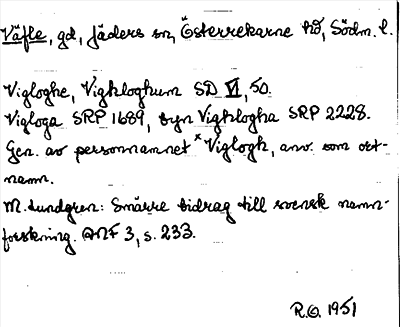 Väfle, gd, Jäders sn, Österrekarne hd, Södm. l.
Vigloghe, Vigkloghum SD VI, 50.
Vigloga SRP 1689, byn Vigklogha SRP 2228.
Gen. av personnamnet *Viglogh, anv. som ort-
namn.
M. Lundgren: Smärre bidrag till svensk namn-
forskning. ANF 3, s. 233.
R.O. 1951